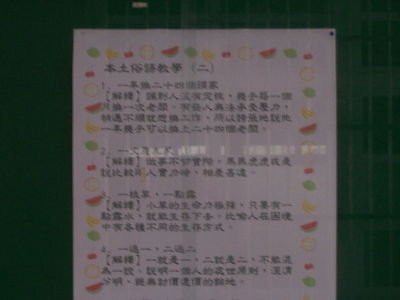 本土俗語教學（二）
1、一年換二十四個頭家
【解釋】諷刺人沒有定性，幾乎每一個
月換一次老闆。有些人無法承受壓力，
稍遇不順就想換工作，所以誇張地說他
一年幾乎可以換上二十四個老闆。
【解釋】做事不切實際，馬馬虎虎或是
說比較兩人實力時，相差甚遠。
3、一枝草，一點露
【解釋】小草的生命力極強，只要有一
點露水，就能生存下去。比喻人在困境
中有各種不同的生存方式。
4、一過一，二過二
【解釋】一就是一，二就是二，不能混
為一說。說明一個人的處世原則，涇渭
分明，絕無討價還價的餘地。